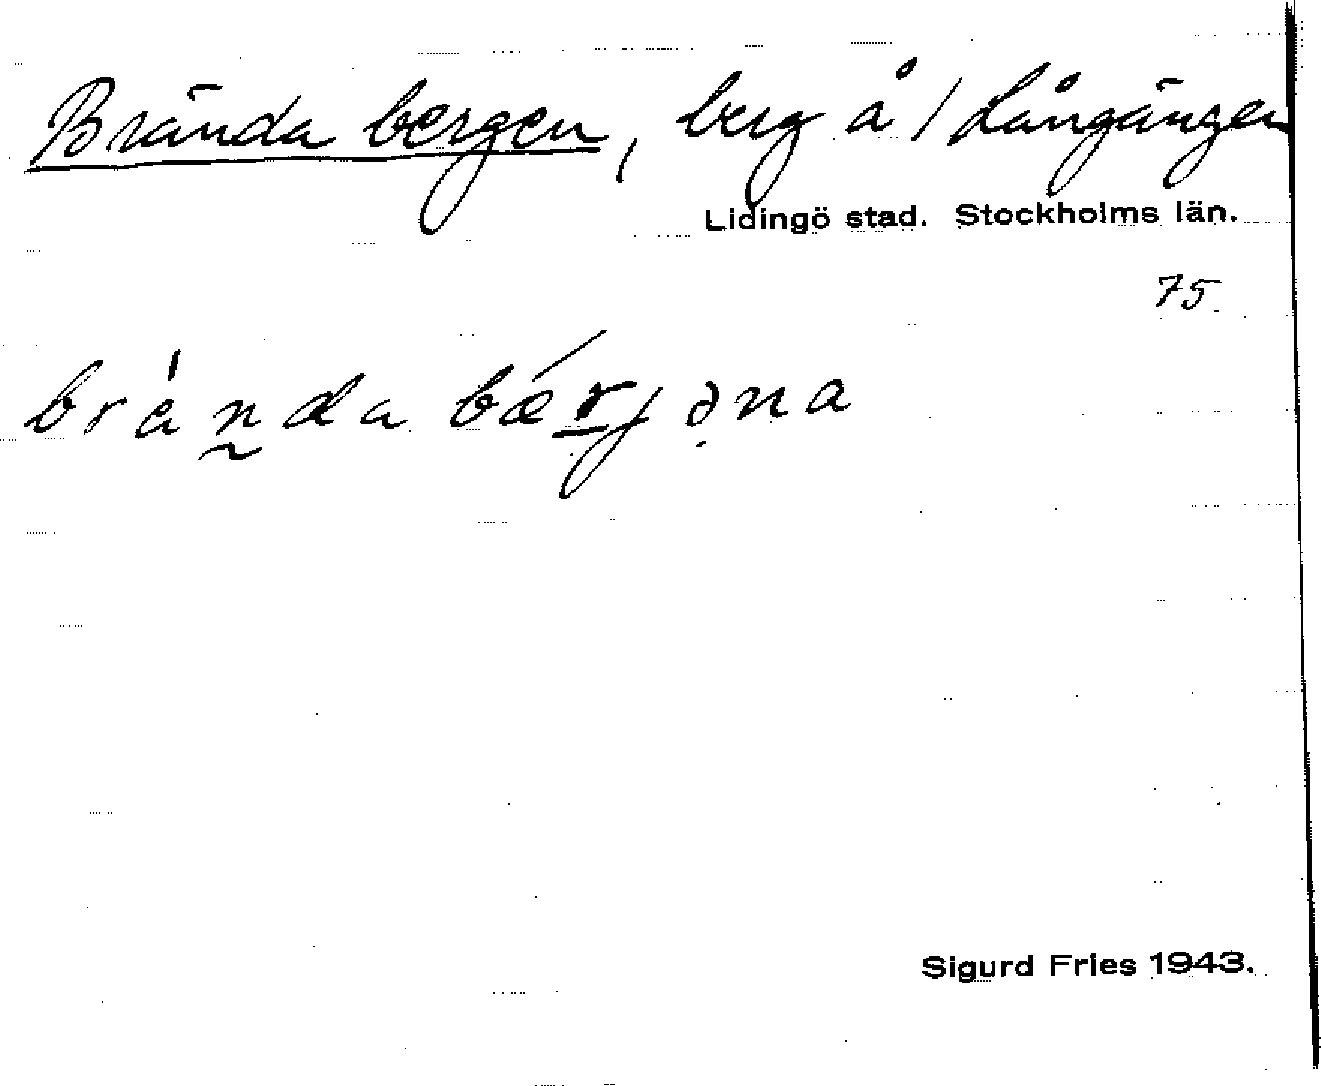 Brända bergen, berg å / Långängen
Lidingö stad. Stockholms län.
75
brända bærjəna
Sigurd Fries 1943.